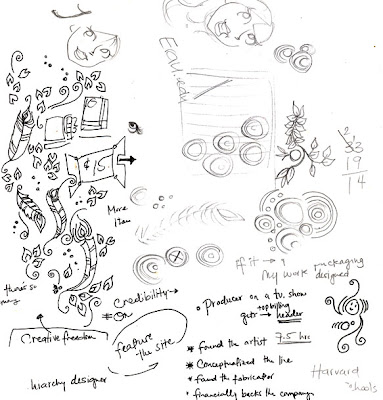 $15
2 3
33
19
14
More
Item
there's so
many
Creative freedom
hierarchy designer
Credibility →
* On
feature
the site
ff it → ?
My work packaging
designed
o Producer on a t.v. show
topbilling
gets → header
* found the artist 7.5 hrs
* Conceptualized the line
* found the fabricator
* financially backs the campaign
Harvard
schools